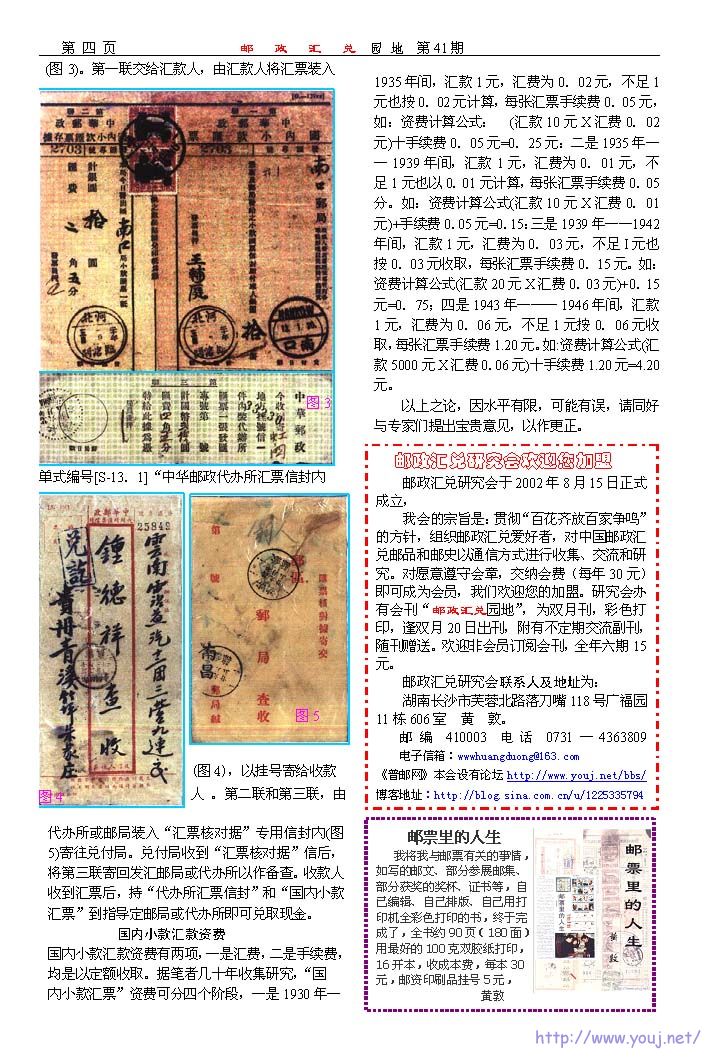 第 四 页
邮 政 汇 兑 园 地 第 41 期
(图 3)。第一联交给汇款人，由汇款人将汇票装入
中華郵政
國內小款匯票
2703
2703
南口郵局
計銀圓
拾
圓
匯費
二角五分
南口
王輔庭
拾
河北
南口
图 3
中華郵政
单式编号[S-13．1]“中华邮政代办所汇票信封内
中華郵政
25849
鍾德祥查收
图 4
第 號
郵局
郵局查收
匯票核對據寄交
南昌
郵局緘
图 5
(图 4)，以挂号寄给收款
人 。第二联和第三联，由
代办所或邮局装入“汇票核对据”专用信封内(图
5)寄往兑付局。兑付局收到“汇票核对据”信后，
将第三联寄回发汇邮局或代办所以作备查。收款人
收到汇票后，持“代办所汇票信封”和“国内小款
汇票”到指导定邮局或代办所即可兑取现金。
国内小款汇款资费
国内小款汇款资费有两项，一是汇费，二是手续费，
均是以定额收取。据笔者几十年收集研究，“国
内小款汇票”资费可分四个阶段，一是 1930 年—
1935 年间，汇款 1 元，汇费为 0．02 元，不足 1
元也按 0．02 元计算，每张汇票手续费 0．05 元，
如：资费计算公式： (汇款 10 元 X 汇费 0．02
元)十手续费 0．05 元=0．25 元：二是 1935 年—
— 1939 年间，汇款 1 元，汇费为 0．01 元，不
足 1 元也以 0．01 元计算，每张汇票手续费 0．05
分。如：资费计算公式(汇款 10 元 X 汇费 0．01
元)+手续费 0.05 元=0.15:三是 1939 年——1942
年间，汇款 1 元，汇费为 0．03 元，不足 I 元也
按 0．03 元收取，每张汇票手续费 0．15 元。如:
资费计算公式(汇款 20 元 X 汇费 0．03 元)+0．15
元=0．75；四是 1943 年——— 1946 年间，汇款
1 元，汇费为 0．06 元，不足 1 元按 0．06 元收
取，每张汇票手续费 1.20 元。如:资费计算公式(汇
款 5000 元 X 汇费 0.06 元)十手续费 1.20 元=4.20
元。
以上之论，因水平有限，可能有误，请同好
与专家们提出宝贵意见，以作更正。
邮政汇兑研究会欢迎您加盟
邮政汇兑研究会于 2002 年 8 月 15 日正式
成立，
我会的宗旨是：贯彻“百花齐放百家争鸣”
的方针，组织邮政汇兑爱好者，对中国邮政汇
兑邮品和邮史以通信方式进行收集、交流和研
究。对愿意遵守会章，交纳会费（每年 30 元）
即可成为会员，我们欢迎您的加盟。研究会办
有会刊“邮政汇兑园地”，为双月刊，彩色打
印，逢双月 20 日出刊，附有不定期交流副刊，
随刊赠送。欢迎非会员订阅会刊，全年六期 15
元。
邮政汇兑研究会联系人及地址为：
湖南长沙市芙蓉北路落刀嘴 118 号广福园
11 栋 606 室 黄 敦。
邮 编 410003 电 话 0731 — 4363809
电子信箱：wwwhuangduong@163.com
《普邮网》本会设有论坛 http://www.youj.net/bbs/
博客地址：http://blog.sina.com.cn/u/1225335794
邮票里的人生
我将我与邮票有关的事情，
如写的邮文、部分参展邮集、
部分获奖的奖杯、证书等，自
己编辑、自己排版、自己用打
印机全彩色打印的书，终于完
成了，全书约 90 页（180 面）
用最好的 100 克双胶纸打印，
16 开本，收成本费，每本 30
元，邮资印刷品挂号 5 元，
黄敦
邮票里的人生
邮票里的人生
黄敦
http://www.youj.net/